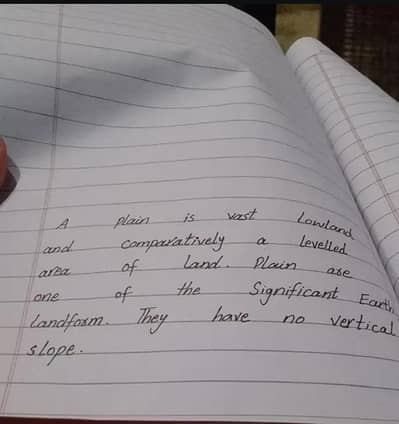 A plain is vast Lowland
and comparatively a levelled
area of land. Plain are
one of the Significant Earth
landform. They have no vertical
slope.